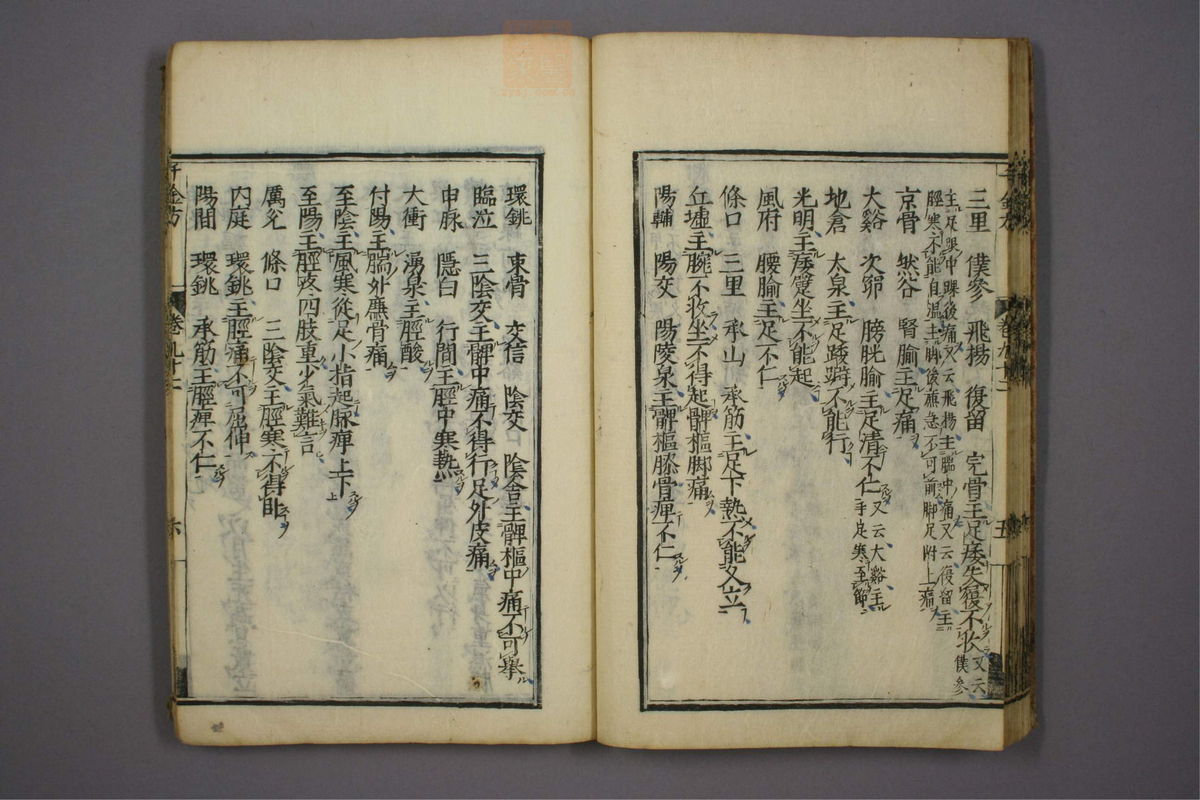 三里　僕參　飛揚　復留　完骨主足痿失履不收又云僕參
主足跟中踝後痛又云飛揚主腨中痛又云復留主
脛寒不能自溫主腨後廉急不可前脚足胕上痛
京骨　然谷　腎腧主足痛
大谿　次窌　膀胱腧主足清不仁又云大谿主手足寒至節
地倉　太泉主足躄躃不能行
光明主痿躄坐不能起
風府　腰腧主足不仁
條口　三里　承山　承筋主足下熱不能久立
丘墟主腕不收坐不得起髀樞脚痛
陽輔　陽交　陽陵泉主髀樞膝骨痺不仁
千金方　卷九十二　五
環銚　束骨　交信　陰交　陰舍主髀樞中痛不可舉
臨泣　三陰交主髀中痛不得行足外皮痛
申脉　隱白　行間主脛中寒熱
大衝　湧泉主脛酸
付陽主腨外廉骨痛
至陰主風寒從足小指起脉痺上下
至陽主脛疼四肢重少氣難言
厲兌　條口　三陰交主脛寒不得臥
內庭　環銚主脛痛不可屈伸
陽間　環銚　承筋主脛痺不仁
千金方　卷九十二　六